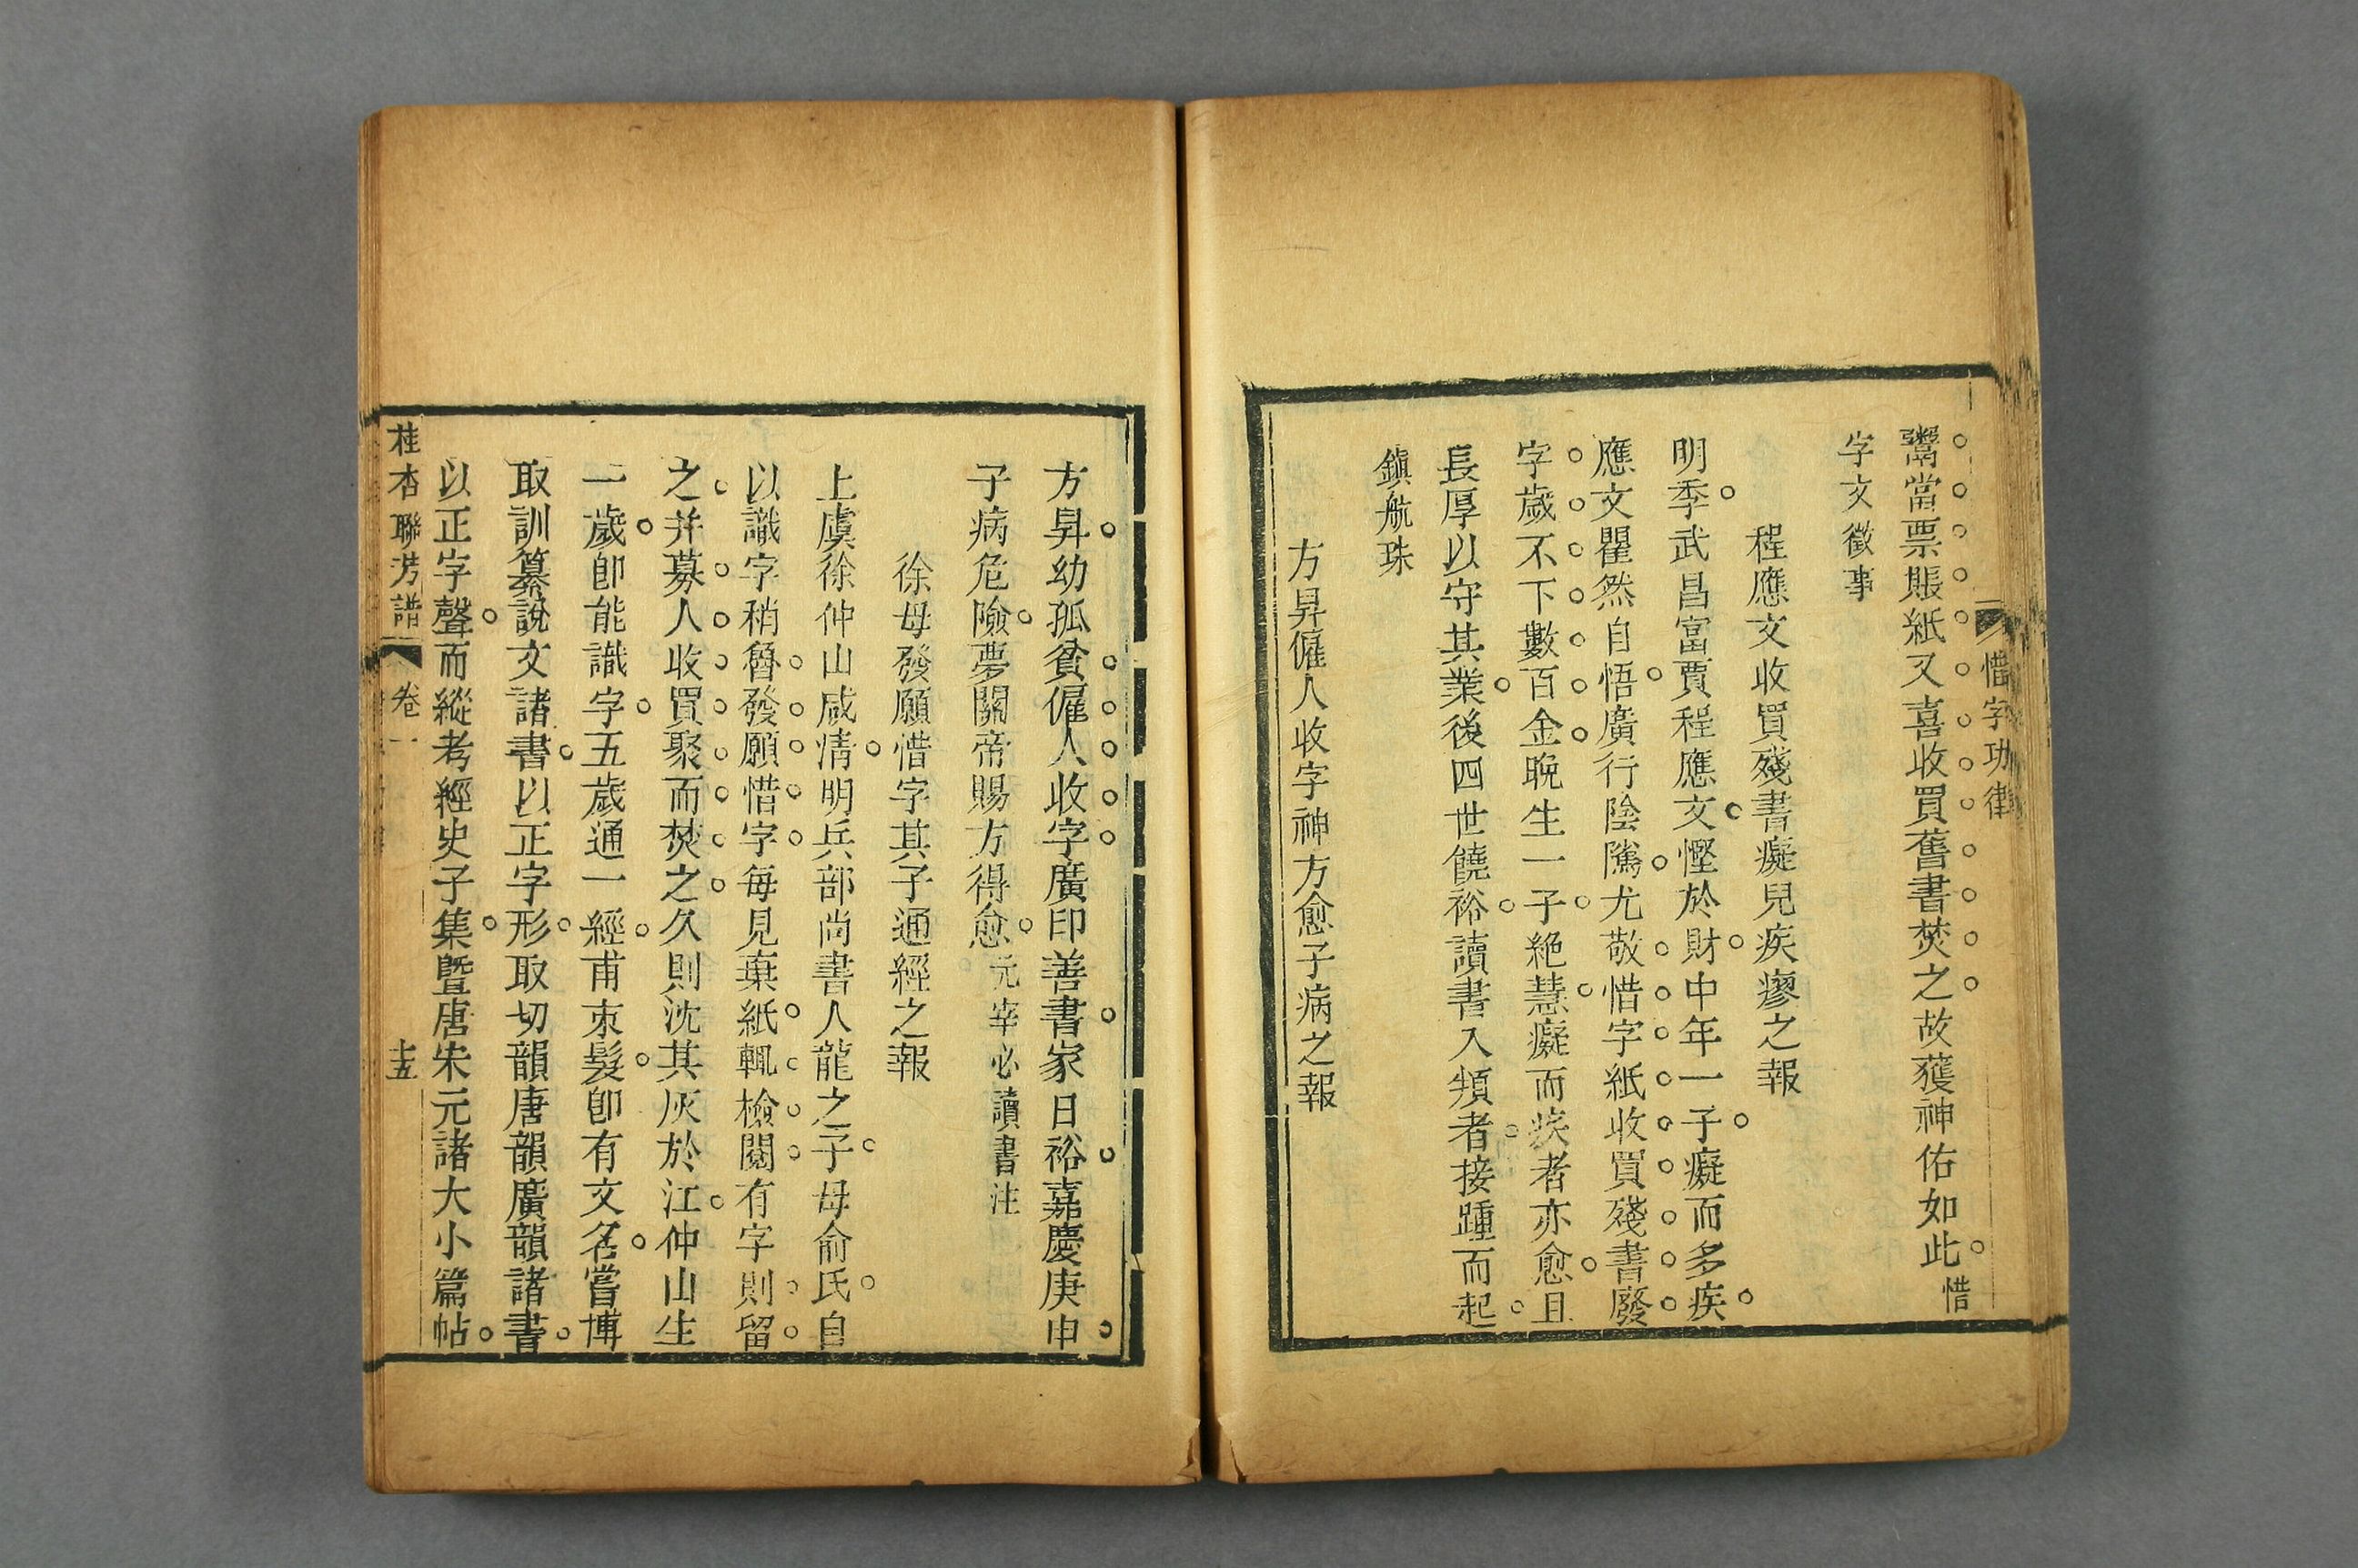 惜字功律
鬻當票賬紙又喜收買舊書焚之故獲神佑如此惜
字文徵事
程應文收買殘書癡兒疾瘳之報
明季武昌富賈程應文慳於財中年一子癡而多疾
應文瞿然自悟廣行陰隲尤敬惜字紙收買殘書廢
字歲不下數百金晚生一子絶慧癡而疾者亦愈且
長厚以守其業後四世饒裕讀書入頖者接踵而起
鎮航珠
方昇僱人收字神方愈子病之報
方昇幼孤貧僱人收字廣印善書家日裕嘉慶庚申
子病危險夢關帝賜方得愈元宰必讀書注
徐母發願惜字其子通經之報
上虞徐仲山咸清明兵部尚書人龍之子母俞氏自
以識字稍魯發願惜字每見棄紙輒檢閱有字則留
之并募人收買聚而焚之久則沈其灰於江仲山生
一歲卽能識字五歲通一經甫束髮卽有文名嘗博
取訓纂說文諸書以正字形取切韻唐韻廣韻諸書
以正字聲而縱考經史子集暨唐宋元諸大小篇帖
桂杏聯芳譜 卷一 十五